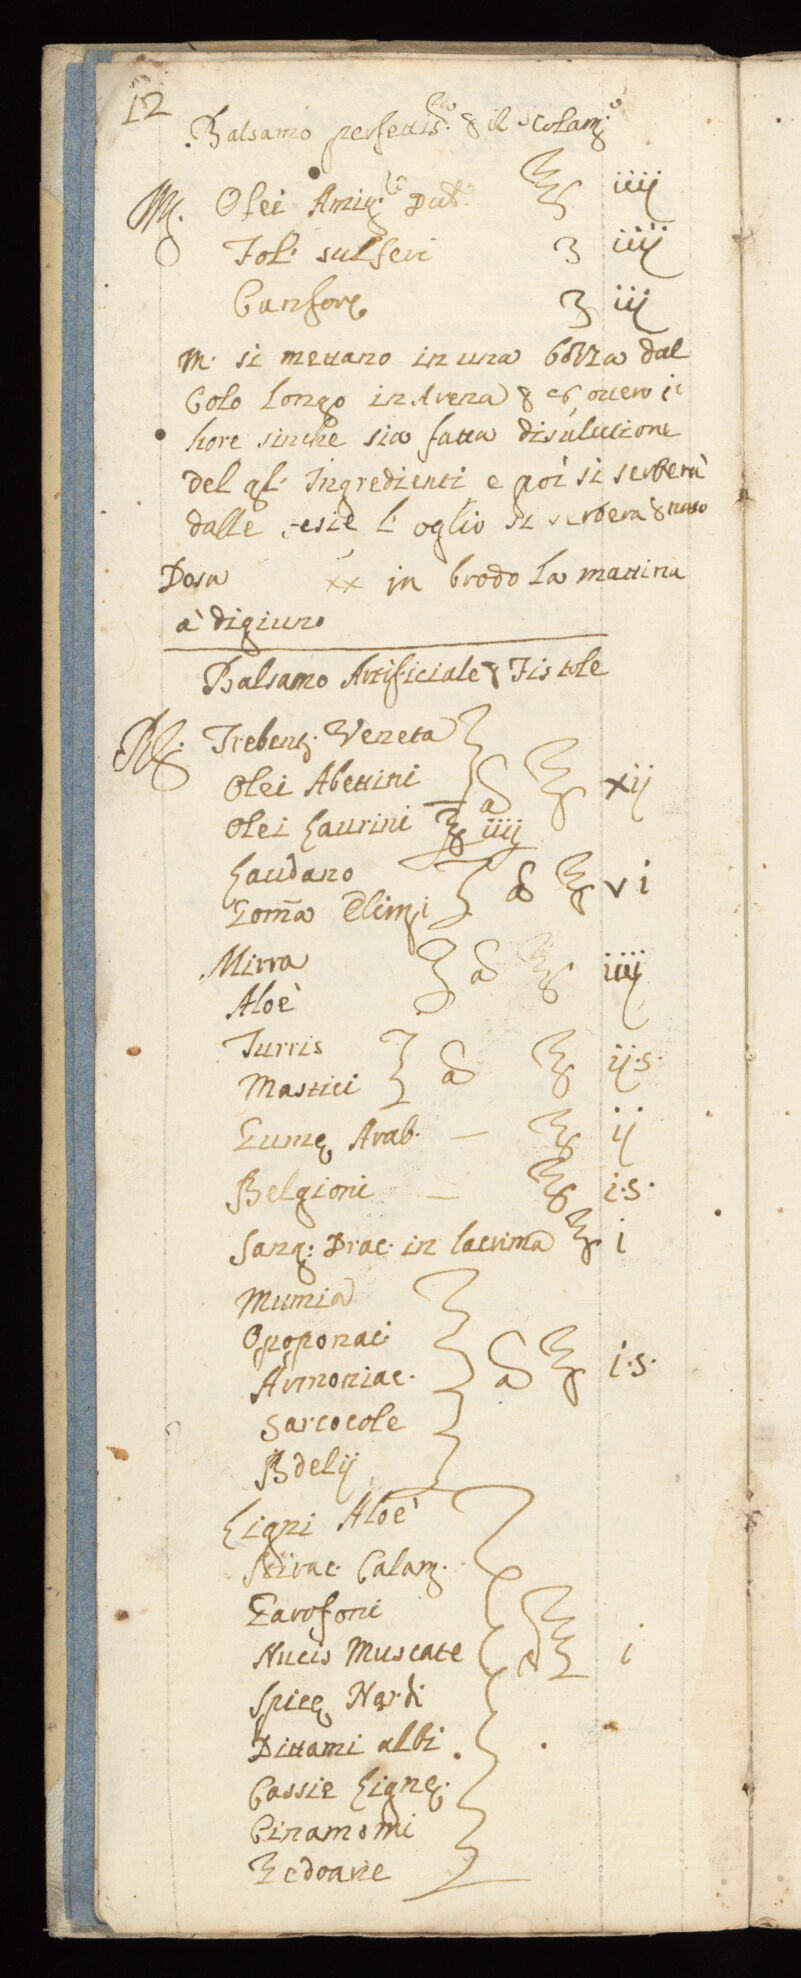 12
Balsamo perfettis.mo p il scolam.o
℞. Olei Amig.li Dul. ℥ iiij
Fol. sulferi ʒ iiij
Canforę ʒ iij
M. si mettano in una bozza dal
Colo Longo in Arena p 26 overo
hore sinche sia fatta disulutione
del ql. Ingredienti e poi si serberà
dalle fesie l'oglio si serberà p uso
Dosa xx in brodo La mattina
à digiuno
Balsamo Artificiale p Fistole
℞. Trebent. Veneta
Olei Abettini ā ℥ xij
Olei Laurini ℥ iiij
Laudano
Gom̄a Elimi ā ℥ vi
Mirra
Aloè ā ℥ iiij
Turris
Mastici ā ℥ ij.s.
Gumę Arab. — ℥ ij
Belgioni — ℥ i.s.
Sang: Drac. in lacrima ℥ i
Mumia
Opoponaci
Armoniac. ā ℥ i.s.
Sarcocole
Bdelij
Ligni Aloè
Stirac. Calam.
Garofoni
Nucis Muscate ā ℥ i
Spicę Nardi
Dittami albi
Cassie Lignę.
Cinamomi
Zedoarie